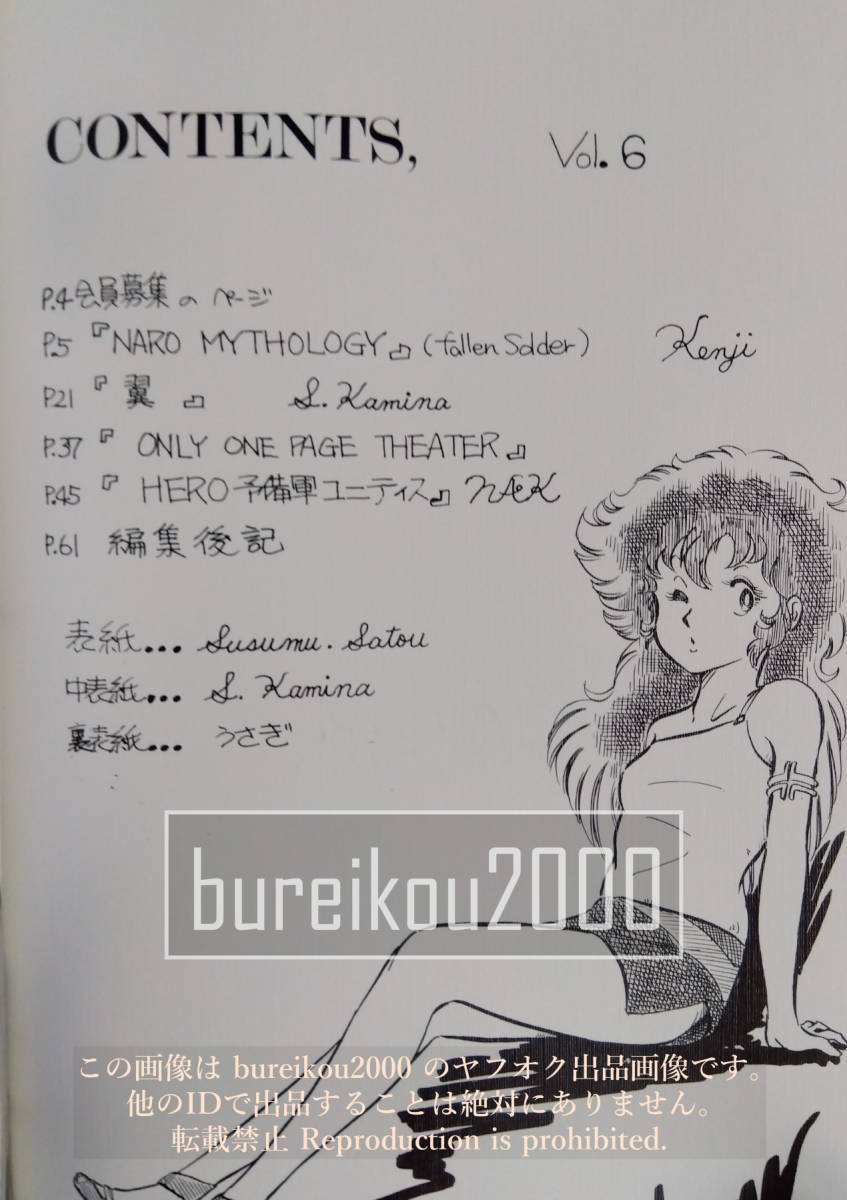 CONTENTS,
Vol. 6
P.4 会員募集のページ
P.5 『NARO MYTHOLOGY』(fallen Solder) Kenji
P.21 『翼』 S. Kamina
P.37 『ONLY ONE PAGE THEATER』
P.45 『HERO予備軍ユニティス』 NÆK
P.61 編集後記
表紙... Susumu. Satou
中表紙... S. Kamina
裏表紙... うさぎ
bureikou2000
この画像は bureikou2000 のヤフオク出品画像です。
他のIDで出品することは絶対にありません。
転載禁止 Reproduction is prohibited.